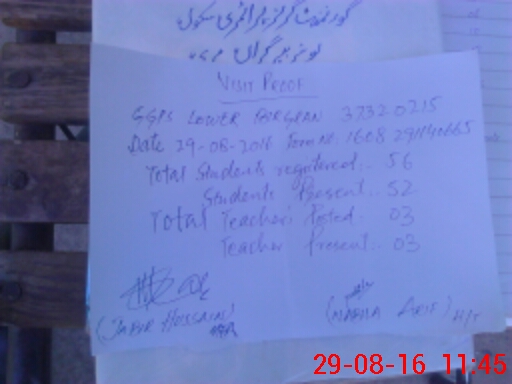 گورنمنٹ گرلز پرائمری سکول
لوئر بیرگراں مری
VISIT PROOF
GGPS LOWER BERGRAN 37320215
Date 29-08-2016 Form No. 160829140665
Total Students registered.. 56
Students Present.. 52
Total Teachers Posted. 03
Teacher Present.. 03
(JABIR HUSSAIN)
(NABILA ARIF) H/T
29-08-16 11:45